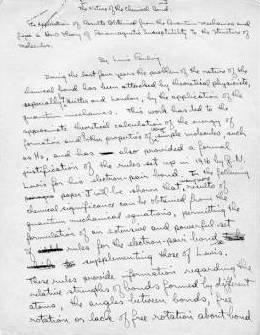 The Nature of the Chemical Bond.
The Application of Results Obtained from the Quantum Mechanics and
from a Theory of Paramagnetic Susceptibility to the Structure of
Molecules.
By Linus Pauling
During the last four years the problem of the nature of the
chemical bond has been attacked by theoretical physicists,
especially Heitler and London, by the application of the
quantum mechanics. This work has led to the
approximate theoretical calculation of the energy of
formation and other properties of simple molecules, such
as H2, and has also provided a formal
justification of the rules set up in 1916 by G. N.
Lewis for his electron-pair bond. In the following
paper I will be shown that results of
chemical significance can be obtained from the
quantum mechanical equations, permitting the
formulation of an extensive and powerful set
of rules for the electron-pair bond
supplementing those of Lewis.
These rules provide information regarding the
relative strengths of bonds formed by different
atoms, the angles between bonds, free
rotation or lack of free rotation about bond